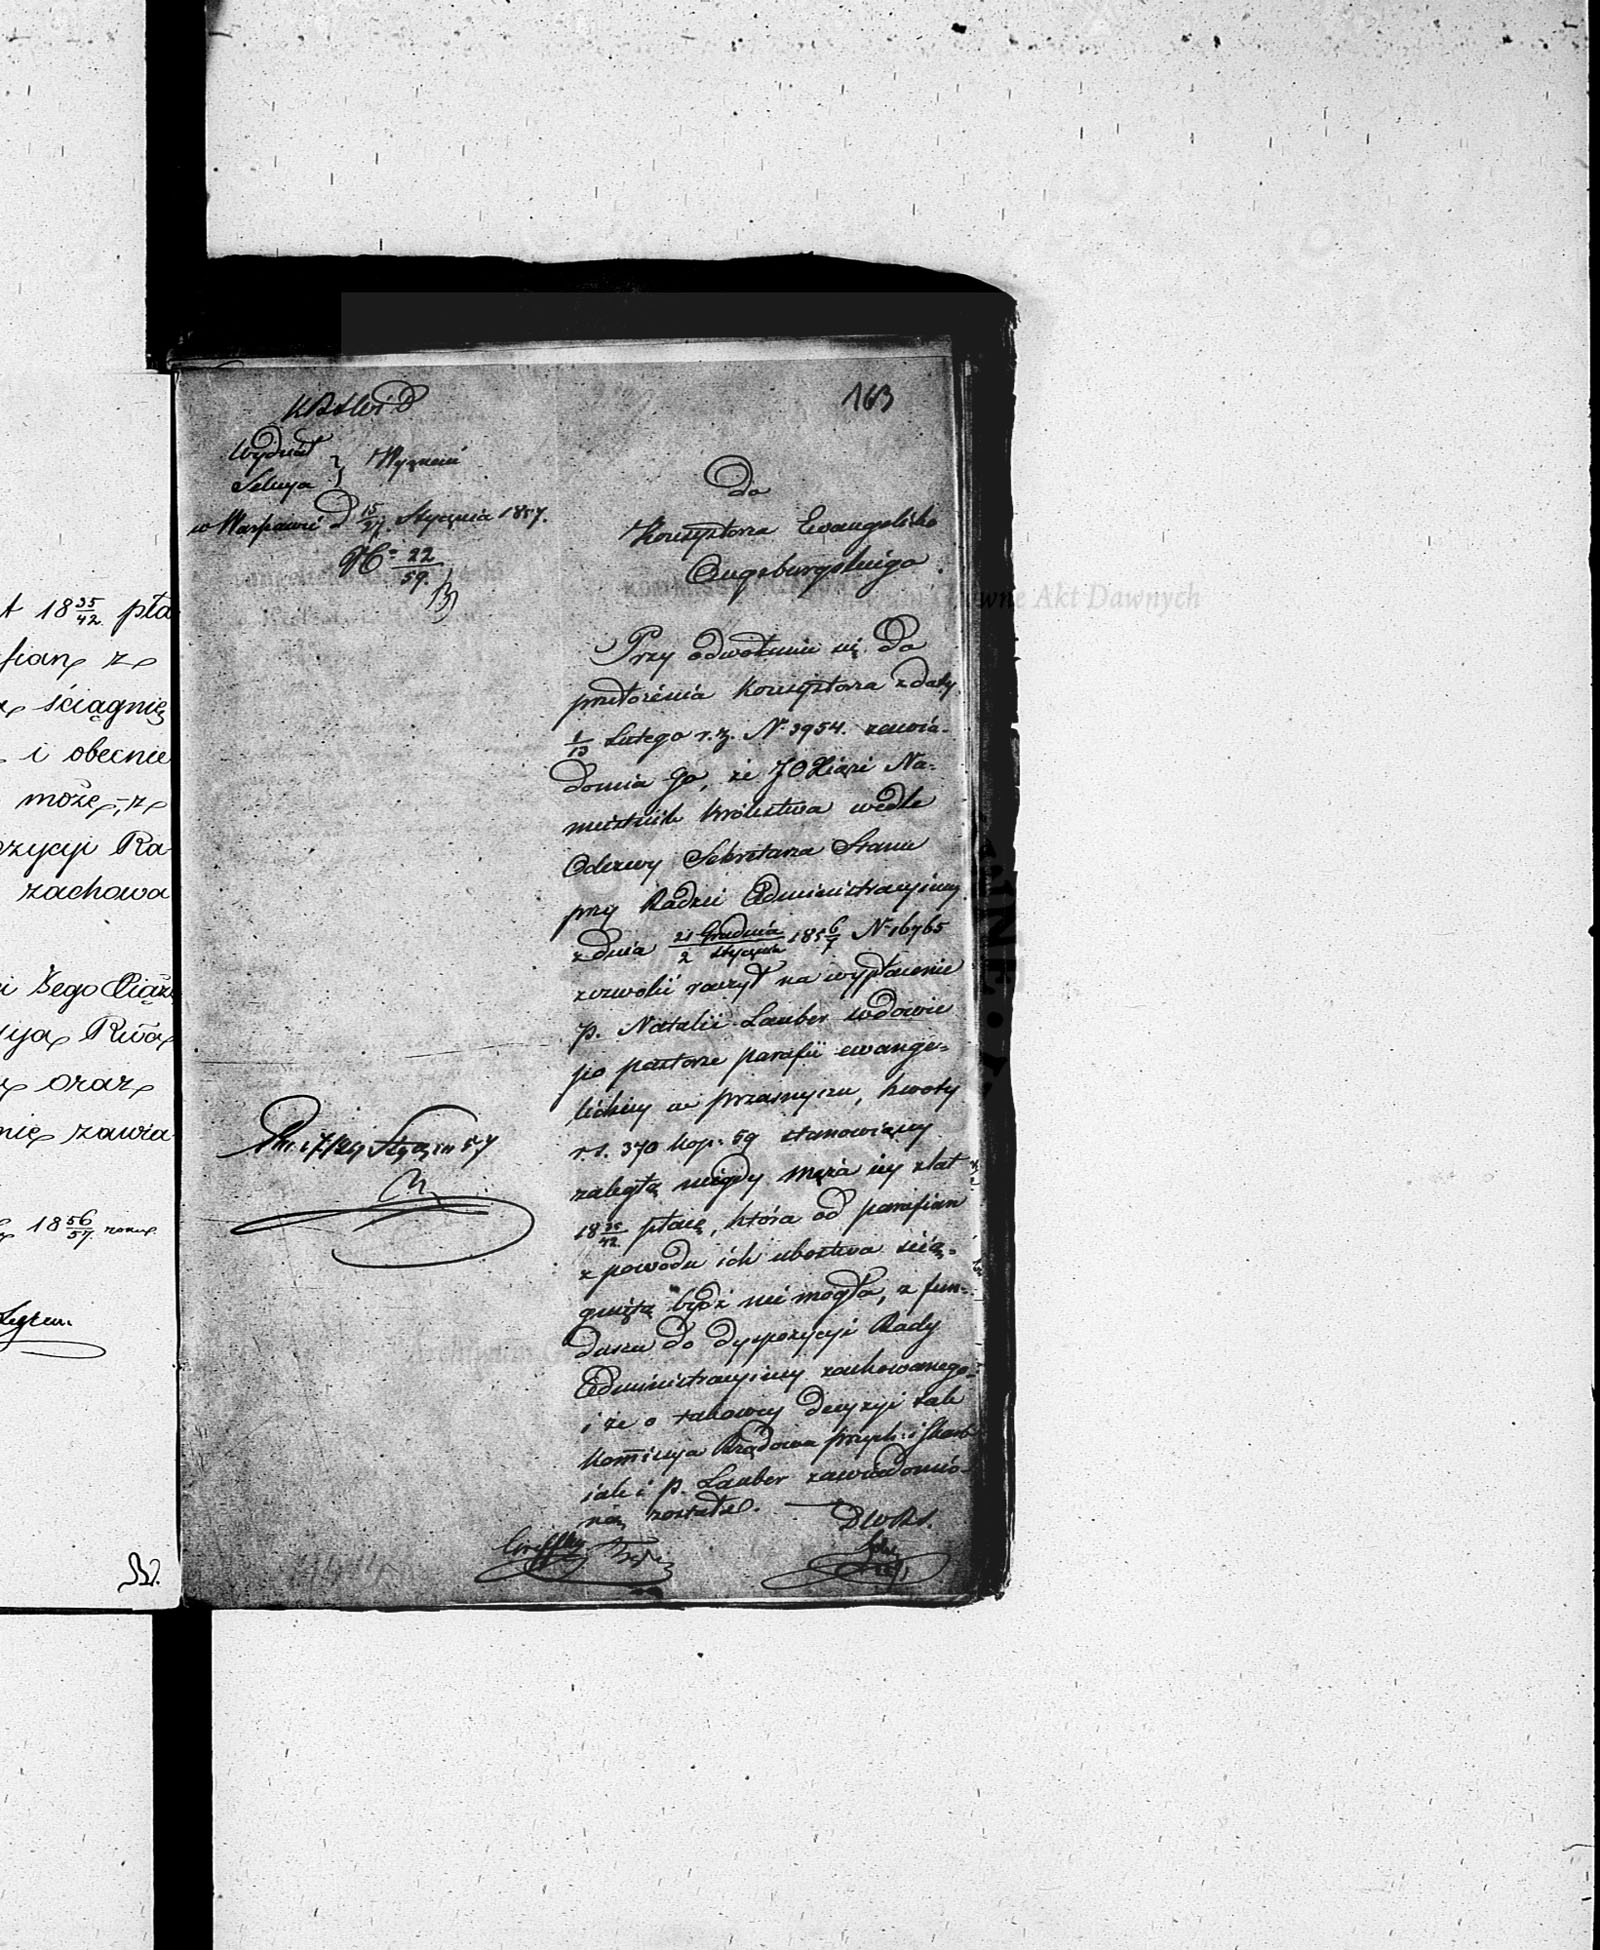 t 18 35/42 pła
fian z
ściągnię
i obecnie
może, z
ozycyi Ra-
zachowa
i Jego Xiąże
ija Rząd
oraz
nię zawia-
18 56/57 roku
163
K R S W i D
Wydział
Sekcya } Wyznań
w Warszawie d 15/27 Stycznia 1857.
N 22/59
Do
Konsystorza Ewangelicko
Augsburgskiego.
Przy odwołaniu się do
przełożenia Konsystorza z daty
1/13 Lutego r. z. N. 3954. zawia-
domia go, że JO Xiąże Na-
miestnik Królestwa wedle
Odezwy Sekretarza Stanu
przy Radzie Administracyjnej
z dnia 21 Grudnia/2 Stycznia 185 6/7 N 16765
zezwolić raczył na wypłacenie
p. Natalii Lauber wdowie
po pastorze parafii ewange-
lickiej w Przasnyszu, kwoty
r.s. 370 kop: 59 stanowiącej
zaległą niegdy męża jej z lat
18 35/42 płacę, która od parafian
z powodu ich ubóstwa ścią-
gniętą bydź nie mogła, z fun-
duszu do dyspozycyi Rady
Administracyjnej zachowanego
i że o takowej decyzyi tak
Kommissya Rządowa Przych: i Skarb
jak i p. Lauber zawiadomio-
ną została.
D W R S.
17/29 Styczn 57